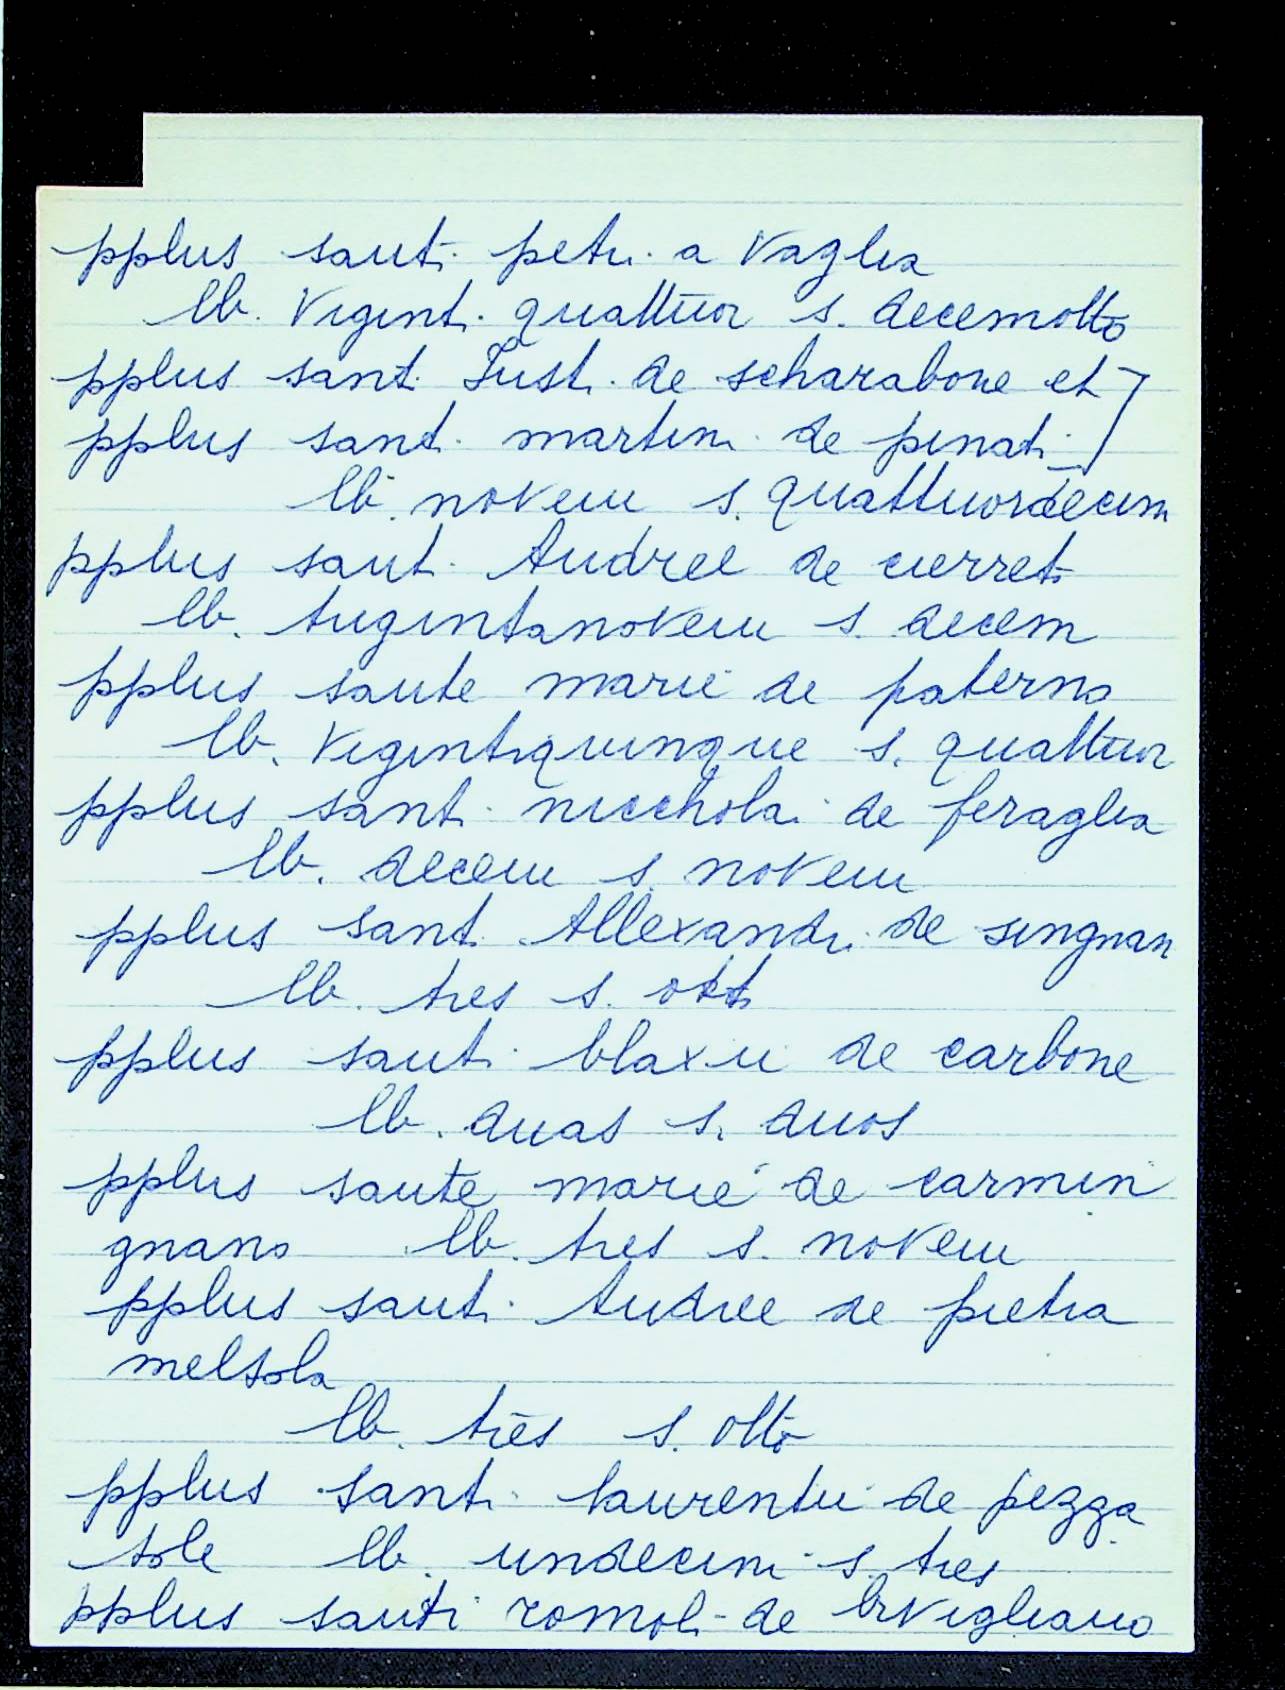 pplus santi petri a Vaglia
lb. Viginti quattuor s. decemotto
pplus santi Iusti de scharabone et
pplus santi martini de pinati
lb. novem s. quattuordecim
pplus santi Andree de cierreti
lb. trigintanovem s. decem
pplus sante marie de paterno
lb. Vigintiquinque s. quattuor
pplus santi niccholai de feraglia
lb. decem s. novem
pplus santi Allexandri de singnan
lb. tres s. otto
pplus santi blaxii de carbone
lb. duas s. duos
pplus sante marie de carmin
gnano lb. tres s. novem
pplus santi Andree de pietra
melsola
lb. tres s. otto
pplus santi laurentii de pezza
tole lb. undecim s. tres
pplus santi romoli de bivigliano